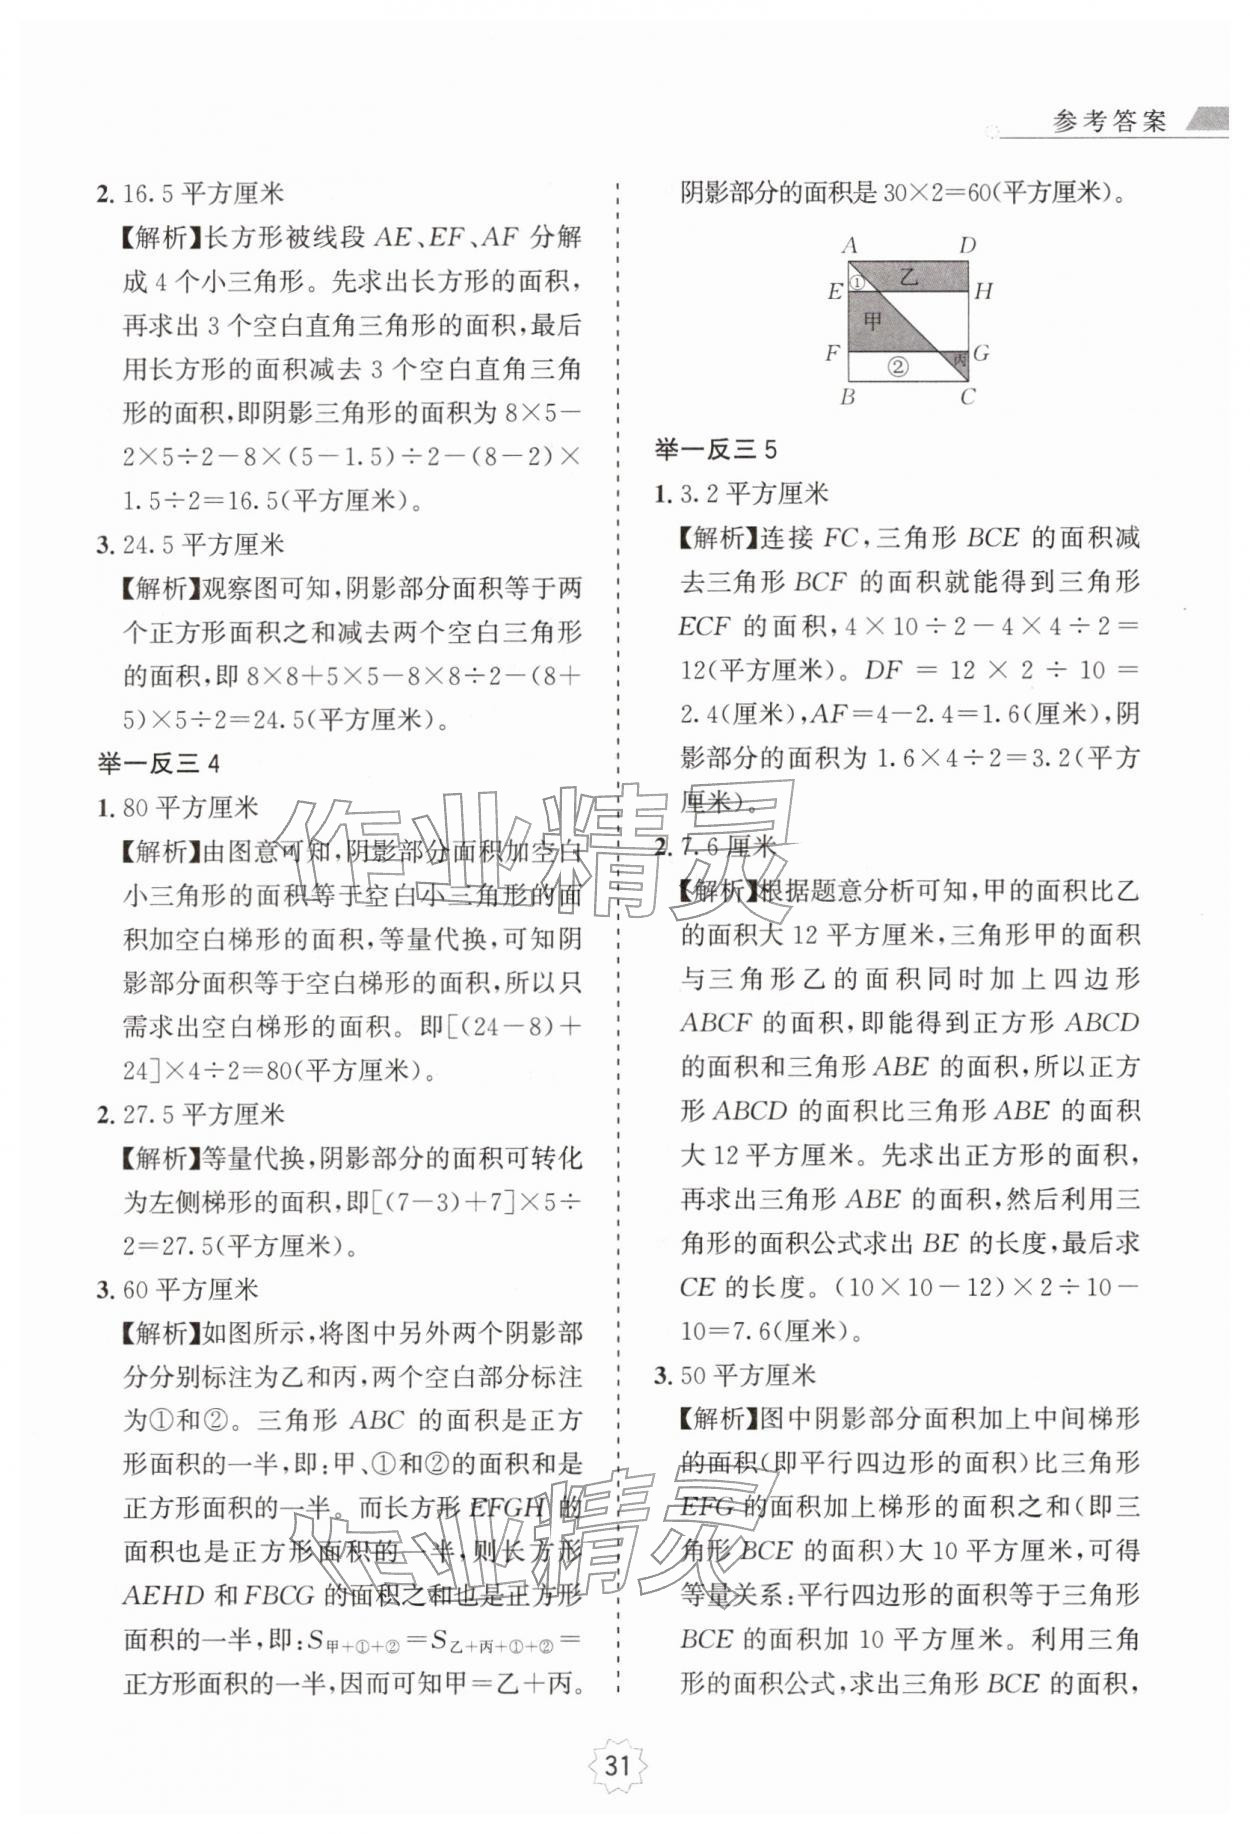 参考答案
2. 16.5 平方厘米
【解析】长方形被线段 AE、EF、AF 分解
成 4 个小三角形。先求出长方形的面积，
再求出 3 个空白直角三角形的面积，最后
用长方形的面积减去 3 个空白直角三角
形的面积，即阴影三角形的面积为 8×5－
2×5÷2－8×(5－1.5)÷2－(8－2)×
1.5÷2＝16.5(平方厘米)。
3. 24.5 平方厘米
【解析】观察图可知，阴影部分面积等于两
个正方形面积之和减去两个空白三角形
的面积，即 8×8＋5×5－8×8÷2－(8＋
5)×5÷2＝24.5(平方厘米)。
举一反三 4
1. 80 平方厘米
【解析】由图意可知，阴影部分面积加空白
小三角形的面积等于空白小三角形的面
积加空白梯形的面积，等量代换，可知阴
影部分面积等于空白梯形的面积，所以只
需求出空白梯形的面积。即[(24－8)＋
24]×4÷2＝80(平方厘米)。
2. 27.5 平方厘米
【解析】等量代换，阴影部分的面积可转化
为左侧梯形的面积，即[(7－3)＋7]×5÷
2＝27.5(平方厘米)。
3. 60 平方厘米
【解析】如图所示，将图中另外两个阴影部
分分别标注为乙和丙，两个空白部分标注
为①和②。三角形 ABC 的面积是正方
形面积的一半，即：甲、①和②的面积和是
正方形面积的一半。而长方形 EFGH 的
面积也是正方形面积的一半，则长方形
AEHD 和 FBCG 的面积之和也是正方形
面积的一半，即：S甲＋①＋②＝S乙＋丙＋①＋②＝
正方形面积的一半，因而可知甲＝乙＋丙。
阴影部分的面积是 30×2＝60(平方厘米)。
A D
① 乙
E H
甲
F 丙 G
②
B C
举一反三 5
1. 3.2 平方厘米
【解析】连接 FC，三角形 BCE 的面积减
去三角形 BCF 的面积就能得到三角形
ECF 的面积，4×10÷2－4×4÷2＝
12(平方厘米)。DF＝12×2÷10＝
2.4(厘米)，AF＝4－2.4＝1.6(厘米)，阴
影部分的面积为 1.6×4÷2＝3.2(平方
厘米)。
2. 7.6 厘米
【解析】根据题意分析可知，甲的面积比乙
的面积大 12 平方厘米，三角形甲的面积
与三角形乙的面积同时加上四边形
ABCF 的面积，即能得到正方形 ABCD
的面积和三角形 ABE 的面积，所以正方
形 ABCD 的面积比三角形 ABE 的面积
大 12 平方厘米。先求出正方形的面积，
再求出三角形 ABE 的面积，然后利用三
角形的面积公式求出 BE 的长度，最后求
CE 的长度。(10×10－12)×2÷10－
10＝7.6(厘米)。
3. 50 平方厘米
【解析】图中阴影部分面积加上中间梯形
的面积(即平行四边形的面积)比三角形
EFG 的面积加上梯形的面积之和(即三
角形 BCE 的面积)大 10 平方厘米，可得
等量关系：平行四边形的面积等于三角形
BCE 的面积加 10 平方厘米。利用三角
形的面积公式，求出三角形 BCE 的面积，
31
作业精灵
作业精灵